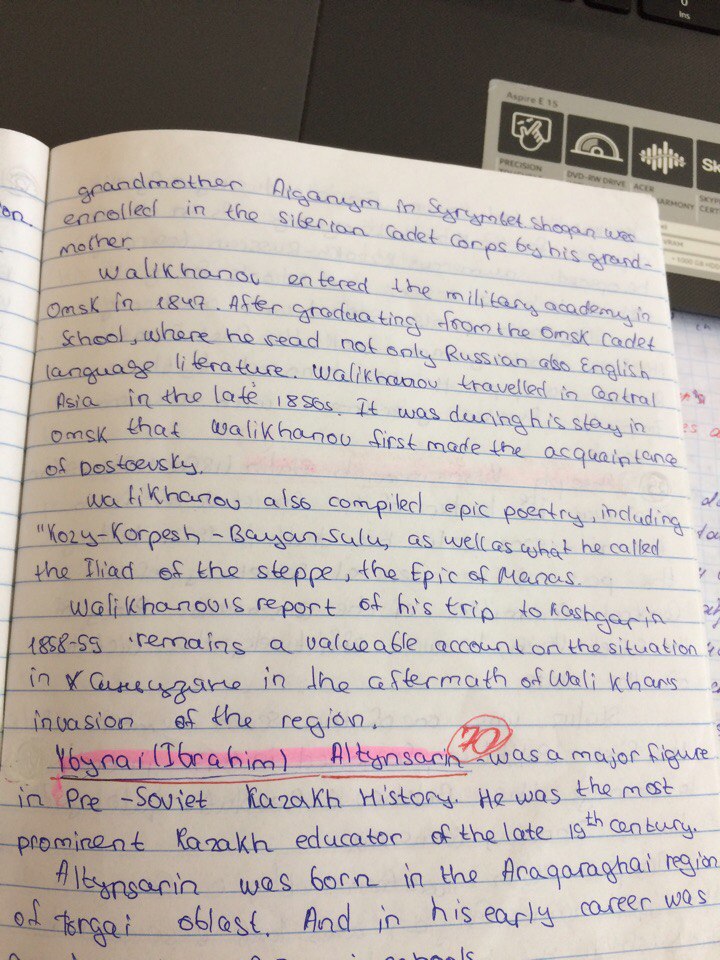 Ins
Aspire E 15
PRECISION
DVD-RW DRIVE
ACER
SKYP
HARMONY
CER
VRAM
on.
grandmother Aiganym in Syrymbet shoqan was
enrolled in the siberian Cadet Corps by his grand-
mother.
Walikhanov entered the military academy in
Omsk in 1847. After graduating from the Omsk Cadet
School, where he read not only Russian also English
language literature. Walikhanov travelled in Central
Asia in the late 1850s. It was during his stay in
Omsk that Walikhanov first made the acquaintance
of Dostoevsky.
Walikhanov also compiled epic poentry, including
"Kozy-Korpesh - Bayan-sulu, as well as what he called
the Iliad of the steppe, the Epic of Manas.
Walikhanov's report of his trip to Kashgar in
1858-59 remains a valueable account on the situation
in in the aftermath of Wali Khan's
invasion of the region.
Ybyrai (Ibrahim) Altynsarin 70 - was a major figure
in Pre - Soviet Kazakh History. He was the most
prominent Kazakh educator of the late 19th century.
Altynsarin was born in the Araqaraghai region
of torgai oblast. And in his early career was
schools